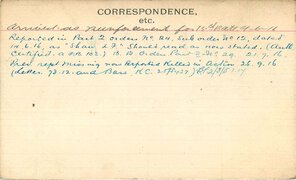 CORRESPONDENCE,
etc.
Arrived as reinforcement for 15th Batt 4-6-16
Reported in Part 2 orders No. 24, Sub order No 12, dated
14.6.16, as "Shaw L.F." Should read as now stated. (Auth
Certified. A.F.B 103.) B. 10. Orders Part 2 No 29. 21.7.16
Prev rept Missing now Reported Killed in Action 26.9.16
(Letter. 9D.12. and Bars K.C.